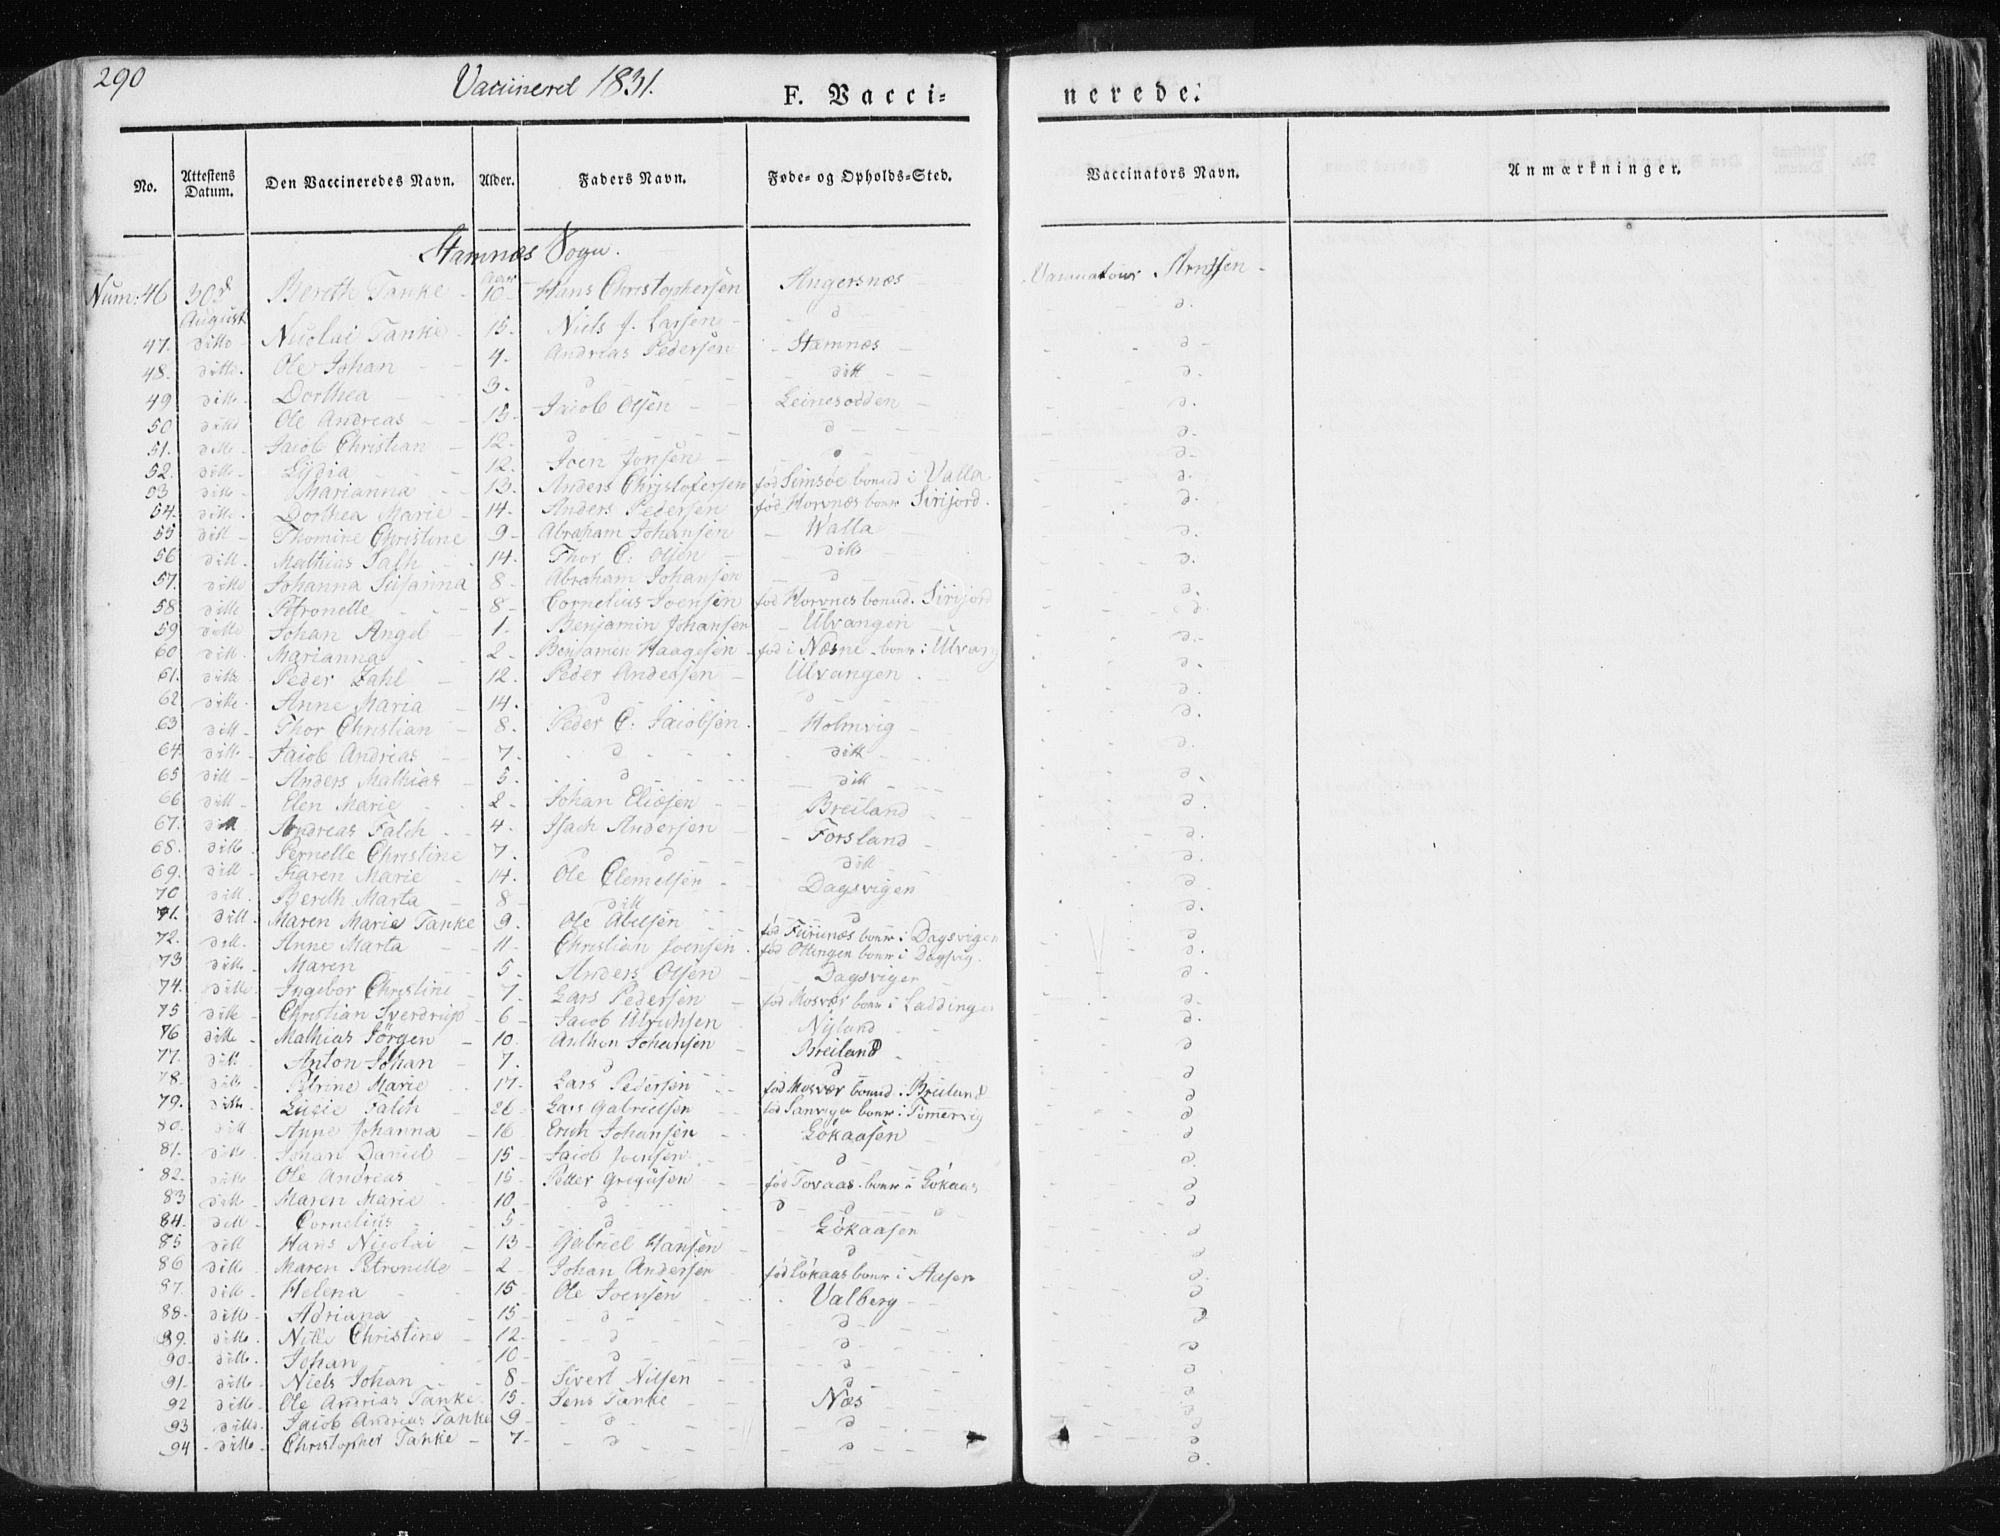 290 Vaccineret 1831. F. Vacci= nerede:
No. Attestens Datum. Den Vaccineredes Navn. Alder. Faders Navn. Føde- og Opholds-Sted. Vaccinators Navn. Anmærkninger.
Stamnæs Sogn.
Num: 46 30d August Bereth Tanke - Aar 10 - Hans Christophersen Angersnæs - Vaccinateur Arntsen -
47. ditto Nicolai Tanke - 15. Niels J. Larsen - d d.
48. ditto. Ole Johan 4. Andreas Pedersen - Stamnæs d -
49 ditto Dorthea 3. d ditt d.
50 ditto Ole Andreas - 15 - Jacob Olsen - Leinesodden - d.
51. ditto Jacob Christian 12 - d d d.
52. ditto Lydia 12. Joen Jonsen d d.
53 ditto Marianna 13. Anders Christofersen fød Simsøe boend i Valla d.
54. ditto Dorthea Marie - 14. Anders Pedersen fød Horvnæs boer Sirijord. d.
55 ditt Thomine Christine 9 - Abraham Johansen - Walla d.
56 ditt. Mathias 14. Thor C: Olsen ditto d.
57. ditto Johanna Susanna 8 - Abraham Johansen d d.
58. ditto Petronelle 8 - Cornelius Joensen fød Horvnes boend. Sirijord d.
59 ditto Johan Angel - 1. Benjamin Johansen - Ulvangen d.
60 ditt. Marianna 2 - Benjamen Haagesen - fød i Næsne - boer i Ulvang d.
61. ditto Peder Zahl - 12. Peder Andersen - Ulvangen. d.
62 ditto. Anne Maria - 14. d d d.
63 ditt - Thor Christian 8. Peder C: Jacobsen. Holmvig - d.
64. ditto - Jacob Andreas 7 d ditt d.
65 ditt - Anders Mathias - 5. d ditt d.
66 ditt - Elen Marie 2 - Johan Eliæsen Breiland d.
67. ditt Andreas Falch 4. Isach Andersen Forsland - d.
68. ditto Pernelle Christine 7. d ditt d.
69. ditt Karen Marie 14. Ole Clemetsen Dagsvigen d.
70 ditt. Bereth Marta 8 - ditt d d.
71. ditt. Maren Marie Tanke 9. Ole Abelsen fød Furunæs boer i Dagsvigen d
72. ditt. Anne Marta 11. Christian Joensen. fød Ottingen boer i Dagsvig. d.
73 ditto Maren 5. Anders Olsen - Dagsvigen d
74. ditto. Ingebor Christine 7. Lars Pedersen fød Mosvær boer i Laddingen d.
75 ditto Christian Sverdrup - 6 - Jacob Ulrichsen. Nyland d.
76 ditto. Mathias Jörgen - 10. Anthon Johansen - Breiland d
77. ditt. Anton Johan - 7. d d d
78. ditto Petrine Marie 17. Lars Pedersen fød Mosvær boend. i Breiland d
79. ditto Lucie Falch 26 - Lars Gabrielsen fød Sanvigen boer i Tömervig d
80. ditt Anne Johanna - 16 Erich Johansen Gökaasen d
81. ditto Johan Daniel - 15 - Jacob Joensen. d d.
82. ditto Ole Andreas 15 - Petter Gregusen - fød Tovaas. boer i Gökaas d
83 ditt Maren Marie 10 - d d d
84. ditt - Cornelius 5 - d Gökaasen d
85 ditt Hans Nicolai - 13 - Gabriel Hansen - d d
86 ditto - Maren Petronelle - 2 - Johan Andersen fød Gökaas boer i Aasen d
87. ditto. Helena - 15 Ole Joensen Valberg - d
88. ditto. Adriana 15 - d d - d
89. ditto. Nille Christine - 12 - d d d
90. ditto. Johan 10 - d d d
91. ditto - Niels Johan 8 Sivert Nilsen d d
92 ditto. Ole Andreas Tanke. 15. Jens Tanke - Næs d
93 ditto. Jacob Andreas Tanke 9 - d d d
94 ditto - Christopher Tanke - 7 - d d d.